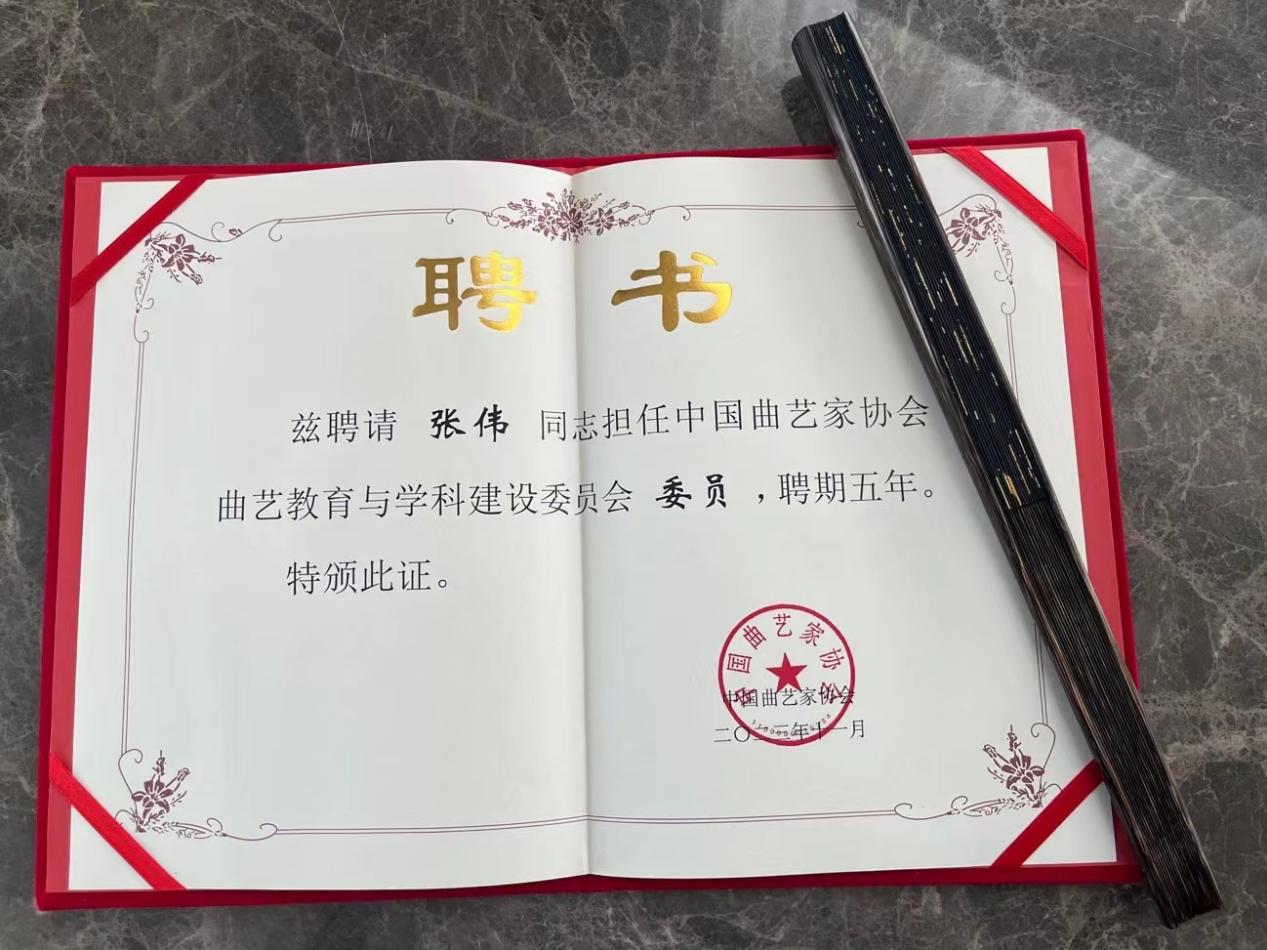 聘 书
兹聘请 张伟 同志担任中国曲艺家协会
曲艺教育与学科建设委员会 委员 ,聘期五年。
特颁此证。
中国曲艺家协会
中国曲艺家协会
二〇二三年十一月